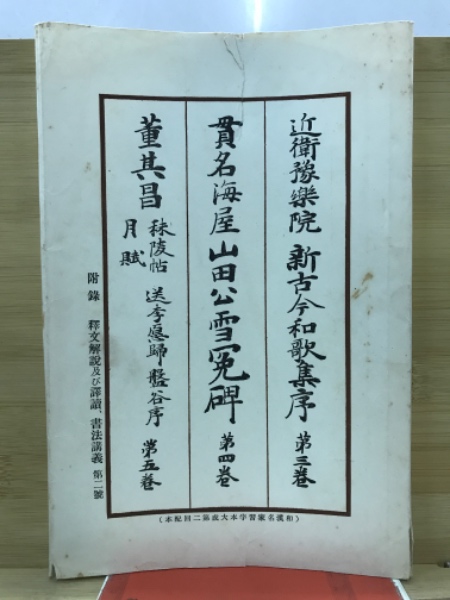 近衛豫樂院 新古今和歌集序 第三巻
貫名海屋 山田公雪冤碑 第四巻
董其昌 秣陵帖 送李愿歸盤谷序 第五巻
月賦
附錄 釋文解說及び譯讀、書法講義 第二號
(和漢名家習字本大成第二回配本)